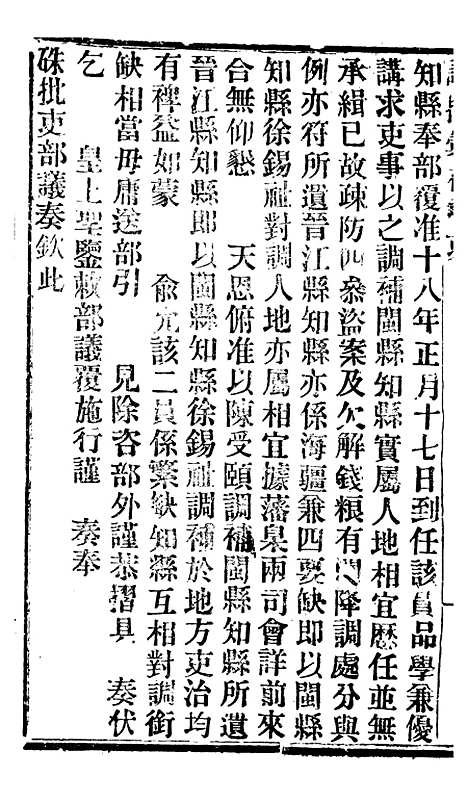 知縣奉部覆准十八年正月十七日到任該員品學兼優
講求吏事以之調補閩縣知縣實屬人地相宜歷任並無
承緝已故疎防四叅盜案及欠解錢糧有降調處分與
例亦符所遺晉江縣知縣亦係海疆兼四要缺即以閩縣
知縣徐錫祉對調人地亦屬相宜據藩臬兩司會詳前來
合無仰懇　天恩俯准以陳受頤調補閩縣知縣所遺
晉江縣知縣即以閩縣知縣徐錫祉調補於地方吏治均
有裨益如蒙　俞允該二員係繁缺知縣互相對調銜
缺相當毋庸送部引　見除咨部外謹恭摺具　奏伏
乞　皇上聖鑒敕部議覆施行謹　奏奉
硃批吏部議奏欽此